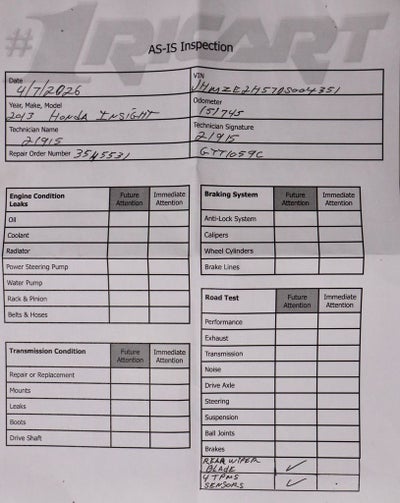 #1RICART
AS-IS Inspection
Date
4/7/2026
VIN
JHMZE2H57DS004351
Year, Make, Model
2013 HONDA INSIGHT
Odometer
151745
Technician Name
21915
Technician Signature
21915
Repair Order Number 3545531
GTT1059C
Engine Condition Future Attention Immediate Attention
Leaks
Oil
Coolant
Radiator
Power Steering Pump
Water Pump
Rack & Pinion
Belts & Hoses
Transmission Condition Future Attention Immediate Attention
Repair or Replacement
Mounts
Leaks
Boots
Drive Shaft
Braking System Future Attention Immediate Attention
Anti-Lock System
Calipers
Wheel Cylinders
Brake Lines
Road Test Future Attention Immediate Attention
Performance
Exhaust
Transmission
Noise
Drive Axle
Steering
Suspension
Ball Joints
Brakes
REAR WIPER
BLADE ✓
4 TPMS
SENSORS ✓